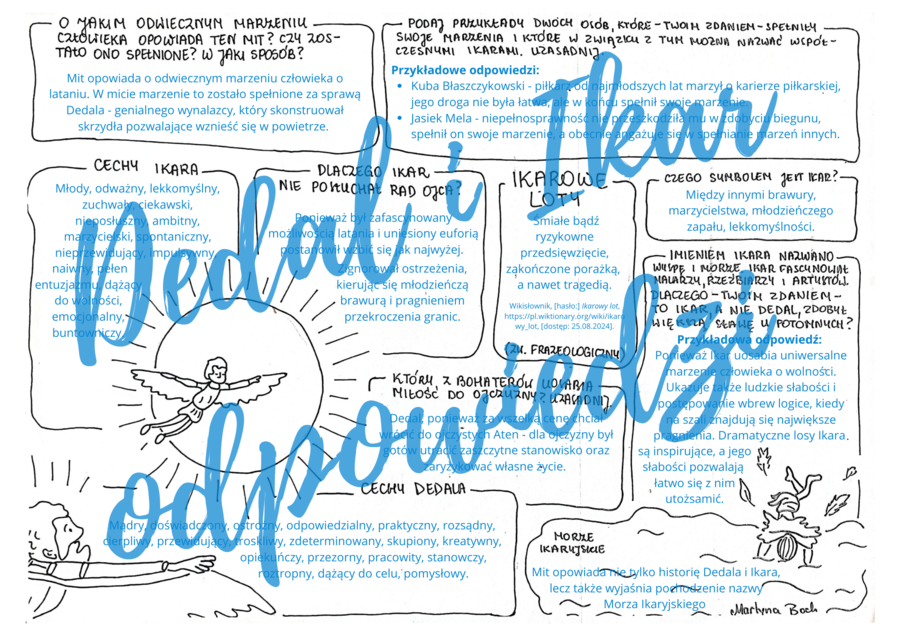 O JAKIM ODWIECZNYM MARZENIU
CZŁOWIEKA OPOWIADA TEN MIT? CZY ZOS-
TAŁO ONO SPEŁNIONE? W JAKI SPOSÓB?
Mit opowiada o odwiecznym marzeniu człowieka o
lataniu. W micie marzenie to zostało spełnione za sprawą
Dedala - genialnego wynalazcy, który skonstruował
skrzydła pozwalające wznieść się w powietrze.
PODAJ PRZYKŁADY DWÓCH OSÓB, KTÓRE - TWOIM ZDANIEM - SPEŁNIŁY
SWOJE MARZENIA I KTÓRE W ZWIĄZKU Z TYM MOŻNA NAZWAĆ WSPÓŁ-
CZESNYMI IKARAMI. UZASADNIJ.
Przykładowe odpowiedzi:
• Kuba Błaszczykowski - piłkarz od najmłodszych lat marzył o karierze piłkarskiej,
jego droga nie była łatwa, ale w końcu spełnił swoje marzenie.
• Jasiek Mela - niepełnosprawność nie przeszkodziła mu w zdobyciu biegunu,
spełnił on swoje marzenie, a obecnie angażuje się w spełnianie marzeń innych.
CECHY IKARA
Młody, odważny, lekkomyślny,
zuchwały, ciekawski,
nieposłuszny, ambitny,
marzycielski, spontaniczny,
nieprzewidujący, impulsywny,
naiwny, pełen
entuzjazmu, dążący
do wolności,
emocjonalny,
buntowniczy
DLACZEGO IKAR
NIE POSŁUCHAŁ RAD OJCA?
Ponieważ był zafascynowany
możliwością latania i uniesiony euforią
postanowił wzbić się jak najwyżej.
Zignorował ostrzeżenia,
kierując się młodzieńczą
brawurą i pragnieniem
przekroczenia granic.
IKAROWE
LOTY
Śmiałe bądź
ryzykowne
przedsięwzięcie,
zakończone porażką,
a nawet tragedią.
Wikisłownik, [hasło:] Ikarowy lot,
https://pl.wiktionary.org/wiki/ikaro
wy_lot, [dostęp: 25.08.2024].
(ZW. FRAZEOLOGICZNY)
CZEGO SYMBOLEM JEST IKAR?
Między innymi brawury,
marzycielstwa, młodzieńczego
zapału, lekkomyślności.
IMIENIEM IKARA NAZWANO
WYSPĘ I MORZE. IKAR FASCYNOWAŁ
MALARZY, RZEŹBIARZY I ARTYSTÓW.
DLACZEGO - TWOIM ZDANIEM -
TO IKAR, A NIE DEDAL, ZDOBYŁ
WIĘKSZĄ SŁAWĘ U POTOMNYCH?
Przykładowa odpowiedź:
Ponieważ Ikar uosabia uniwersalne
marzenie człowieka o wolności.
Ukazuje także ludzkie słabości i
postępowanie wbrew logice, kiedy
na szali znajdują się największe
pragnienia. Dramatyczne losy Ikara
są inspirujące, a jego
słabości pozwalają
łatwo się z nim
utożsamić.
KTÓRY Z BOHATERÓW UOSABIA
MIŁOŚĆ DO OJCZYZNY? UZASADNIJ.
Dedal, ponieważ za wszelką cenę chciał
wrócić do ojczystych Aten - dla ojczyzny był
gotów utracić zaszczytne stanowisko oraz
zaryzykować własne życie.
CECHY DEDALA
Mądry, doświadczony, ostrożny, odpowiedzialny, praktyczny, rozsądny,
cierpliwy, przewidujący, troskliwy, zdeterminowany, skupiony, kreatywny,
opiekuńczy, przezorny, pracowity, stanowczy,
roztropny, dążący do celu, pomysłowy.
MORZE
IKARYJSKIE
Mit opowiada nie tylko historię Dedala i Ikara,
lecz także wyjaśnia pochodzenie nazwy
Morza Ikaryjskiego
Martyna Boch
Dedal i Ikar
odpowiedzi